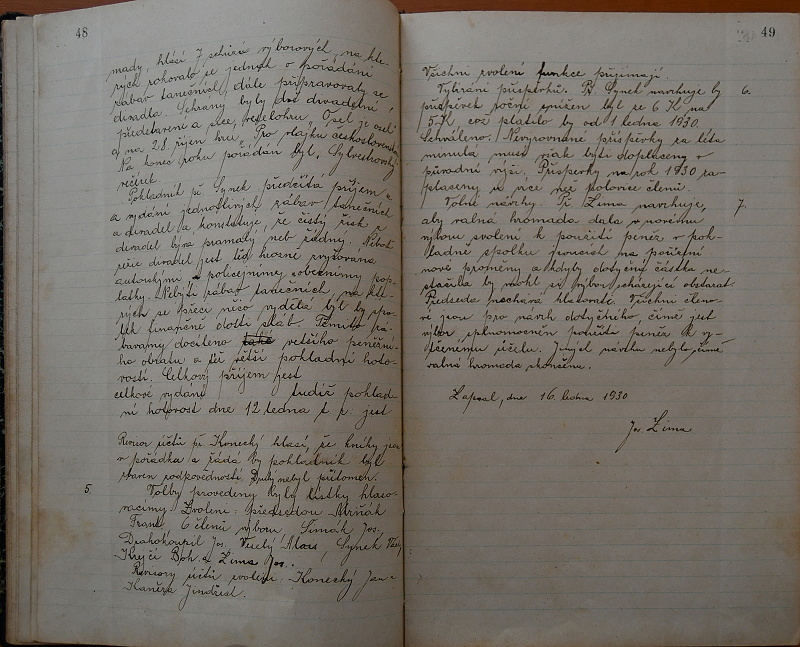 48
mady, hlásí 7 schůzí výborových, na kte-
rých rokovalo se jednak o pořádání
zábav tanečních, dále připravovaly se
divadla. Sehrány byly dvě divadelní
představení a sice, veselohru, "Osel je osel"
a na 28. říjen hru, "Pro vlajku československou
Na konec roku pořádán byl, Sylvestrovský
večírek.
Pokladník př. Synek předčítá příjem a
a vydání jednotlivých zábav tanečních
a divadel a konstatuje, že čistý zisk z
divadel bývá pramalý neb žádný. Neboť
režie divadel jest tíž hrozně zvyšována
autorskými a policejnimy, obecnimy pop-
latky. Nebýti zábav tanečních, na kte-
rých se přece něco vydělá byl by spo-
lek finančně dosti sláb. Těmito zá-
bavamy docíleno také většího peněžní-
ho obratu a též větší pokladní hoto-
vosti. Celkový příjem jest
celkové vydání tudíž poklad-
ní hotovost dne 12 ledna t. r. jest
Revisor účtů př. Konecký hlásí, že knihy jsou
v pořádku a žádá by pokladník byl
zbaven zodpovědnosti. Druhý nebyl přítomen.
5. Volby provedeny byly lístky hlaso-
vacími. Zvoleni: předsedou
Frant, 6 členů výboru, Šimák Jos,
Drahokoupil Jos, Veselý Alois, Synek Vác,
Krejčí Boh. a Zima Jos.
Revisory účtů zvoleni: Konecký Jan a
Kaněra Jindřich.
49
Všichni zvolení funkce přijímají.
6. Vybírání příspěvků. Př. Synek navrhuje by
příspěvek roční snížen byl ze 6 K na
5 K, což platilo by od 1 ledna 1930.
Schváleno. Nevyrovnané příspěvky za léta
minulá musí však býti doplaceny v
původní výši. Příspěvky na rok 1930 za-
placeny u více než polovice členů.
7. Volné návrhy. Př. Zima navrhuje,
aby valná hromada dala novému
výboru svolení k použití peněz v pok-
ladně spolku jsoucích na pořízení
nové promeny a kdyby dotyčná částka ne-
stačila by mohl si výbor scházející obstarat.
Předseda nechává hlasovati. Všichni členo-
vé jsou pro návrh dotyčného, čímž jest
výbor splnomocněn použíti peněz k vy-
tčenému účelu. Jiných návrhů nebylo, čímž
valná hromada skončena.
dne 16. ledna 1930
Jos Zima